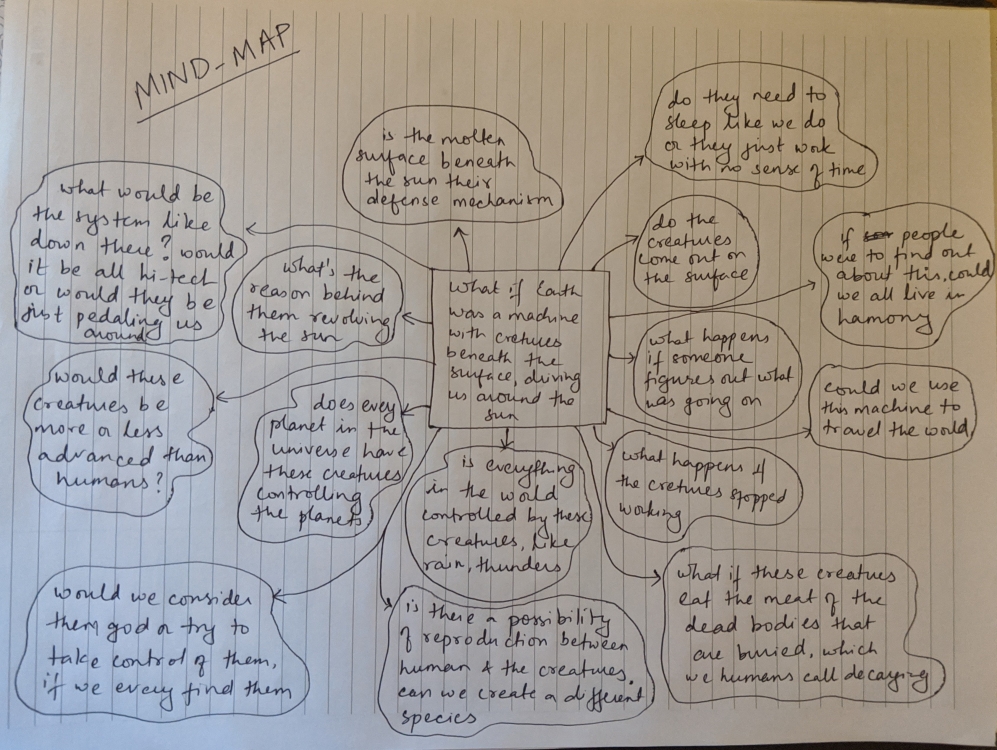 MIND-MAP
is the molten
surface beneath
the sun their
defense mechanism
do they need to
sleep like we do
or they just work
with no sense of time
what would be
the system like
down there? would
it be all hi-tech
or would they be
just pedaling us
around
what's the
reason behind
them revolving
the sun
what if Earth
was a machine
with cretures
beneath the
surface, driving
us around the
sun
do the
creatures
come out on
the surface
if people
were to find out
about this, could
we all live in
hamony
what happens
if someone
figures out what
was going on
could we use
this machine to
travel the world
would these
creatures be
more or less
advanced than
humans?
does evey
planet in the
universe have
these creatures
controlling
the planets
is everything
in the world
controlled by these
creatures, like
rain, thunders
what happens if
the cretures stopped
working
would we consider
them god or try to
take control of them,
if we every find them
is there a possibility
of reproduction between
human & the creatures.
can we create a different
species
what if these creatues
eat the meat of the
dead bodies that
are buried, which
we humans call decaying